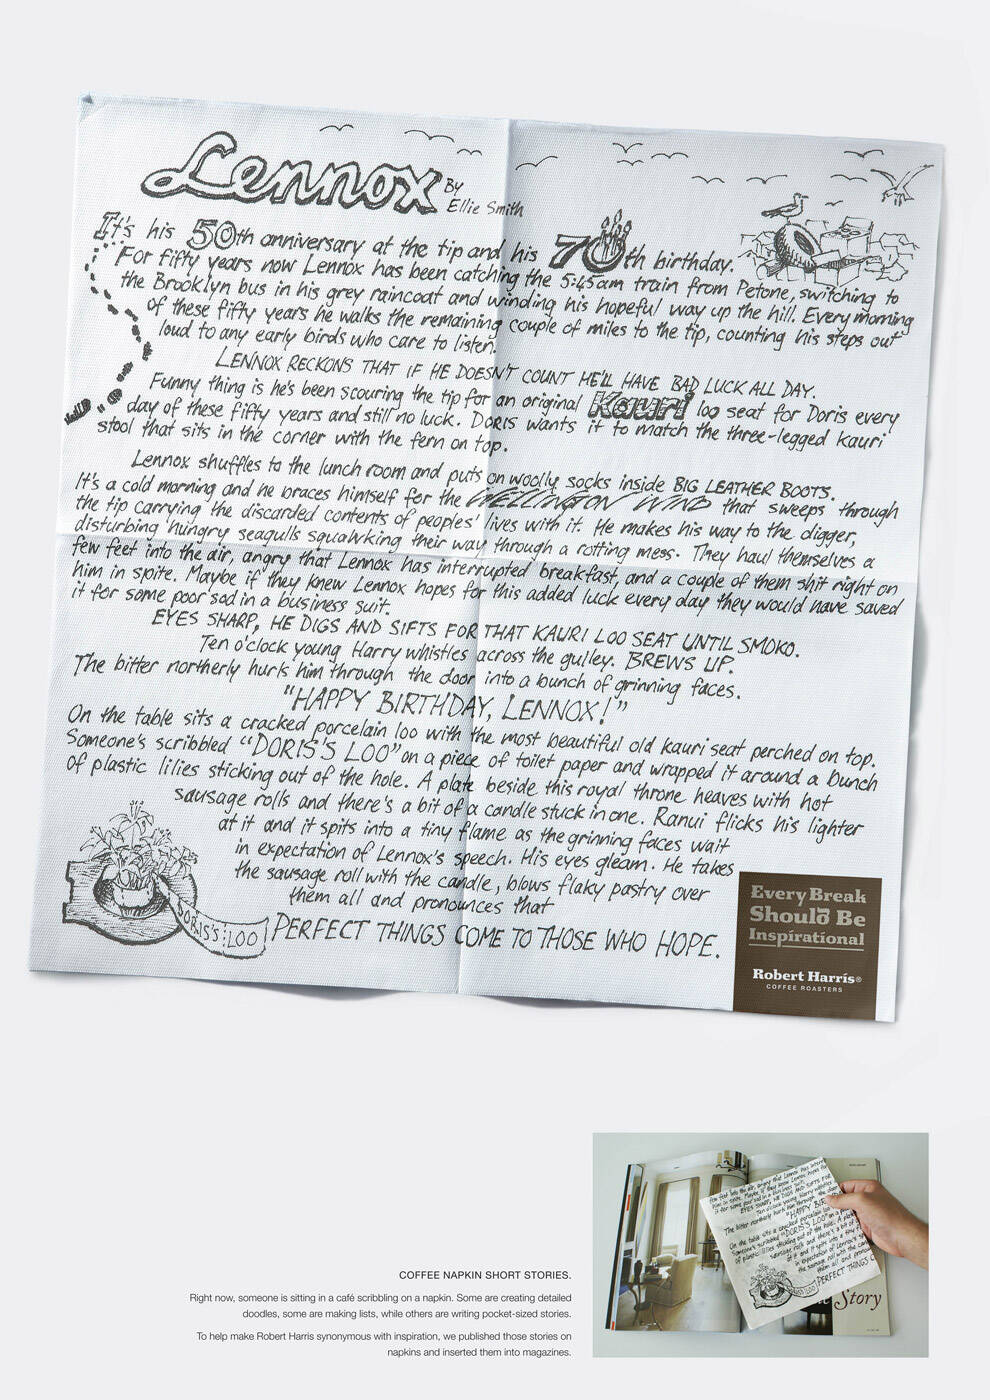 Lennox
By
Ellie Smith
It's his 50th anniversary at the tip and his 70th birthday.
For fifty years now Lennox has been catching the 5:45am train from Petone, switching to
the Brooklyn bus in his grey raincoat and winding his hopeful way up the hill. Every morning
of these fifty years he walks the remaining couple of miles to the tip, counting his steps out
loud to any early birds who care to listen.
LENNOX RECKONS THAT IF HE DOESN'T COUNT HE'LL HAVE BAD LUCK ALL DAY.
Funny thing is he's been scouring the tip for an original Kauri loo seat for Doris every
day of these fifty years and still no luck. Doris wants it to match the three-legged kauri
stool that sits in the corner with the fern on top.
Lennox shuffles to the lunch room and puts on woolly socks inside BIG LEATHER BOOTS.
It's a cold morning and he braces himself for the WELLINGTON WIND that sweeps through
the tip carrying the discarded contents of peoples' lives with it. He makes his way to the digger,
disturbing hungry seagulls squawking their way through a rotting mess. They haul themselves a
few feet into the air, angry that Lennox has interrupted breakfast, and a couple of them shit right on
him in spite. Maybe if they knew Lennox hopes for this added luck every day they would have saved
it for some poor sod in a business suit.
EYES SHARP, HE DIGS AND SIFTS FOR THAT KAURI LOO SEAT UNTIL SMOKO.
Ten o'clock young Harry whistles across the gulley. BREWS UP.
The bitter northerly hurls him through the door into a bunch of grinning faces.
"HAPPY BIRTHDAY, LENNOX!"
On the table sits a cracked porcelain loo with the most beautiful old kauri seat perched on top.
Someone's scribbled "DORIS'S LOO" on a piece of toilet paper and wrapped it around a bunch
of plastic lilies sticking out of the hole. A plate beside this royal throne heaves with hot
sausage rolls and there's a bit of a candle stuck in one. Ranui flicks his lighter
at it and it spits into a tiny flame as the grinning faces wait
in expectation of Lennox's speech. His eyes gleam. He takes
the sausage roll with the candle, blows flaky pastry over
them all and pronounces that
PERFECT THINGS COME TO THOSE WHO HOPE.
DORIS'S LOO
Every Break
Should Be
Inspirational
Robert Harris®
COFFEE ROASTERS
COFFEE NAPKIN SHORT STORIES.
Right now, someone is sitting in a café scribbling on a napkin. Some are creating detailed
doodles, some are making lists, while others are writing pocket-sized stories.
To help make Robert Harris synonymous with inspiration, we published those stories on
napkins and inserted them into magazines.
Story